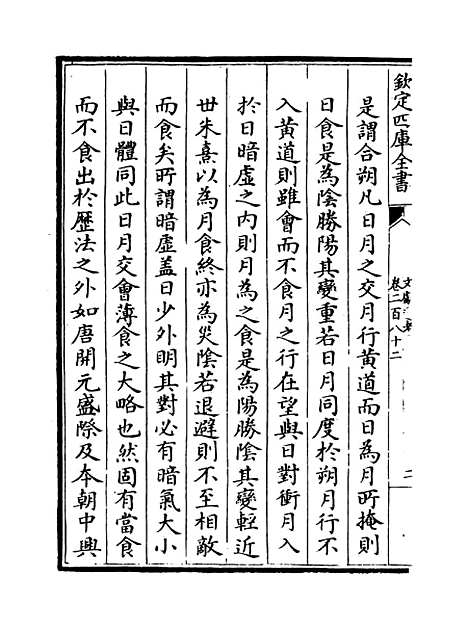 欽定四庫全書
卷二百八十二
二
是謂合朔凡日月之交月行黃道而日為月所掩則
日食是為陰勝陽其變重若日月同度於朔月行不
入黃道則雖會而不食月之行在望與日對衝月入
於日暗虛之內則月為之食是為陽勝陰其變輕近
世朱熹以為月食終亦為災陰若退避則不至相敵
而食矣所謂暗虛盖日少外明其對必有暗氣大小
與日體同此日月交會薄食之大略也然固有當食
而不食出於歷法之外如唐開元盛際及本朝中興